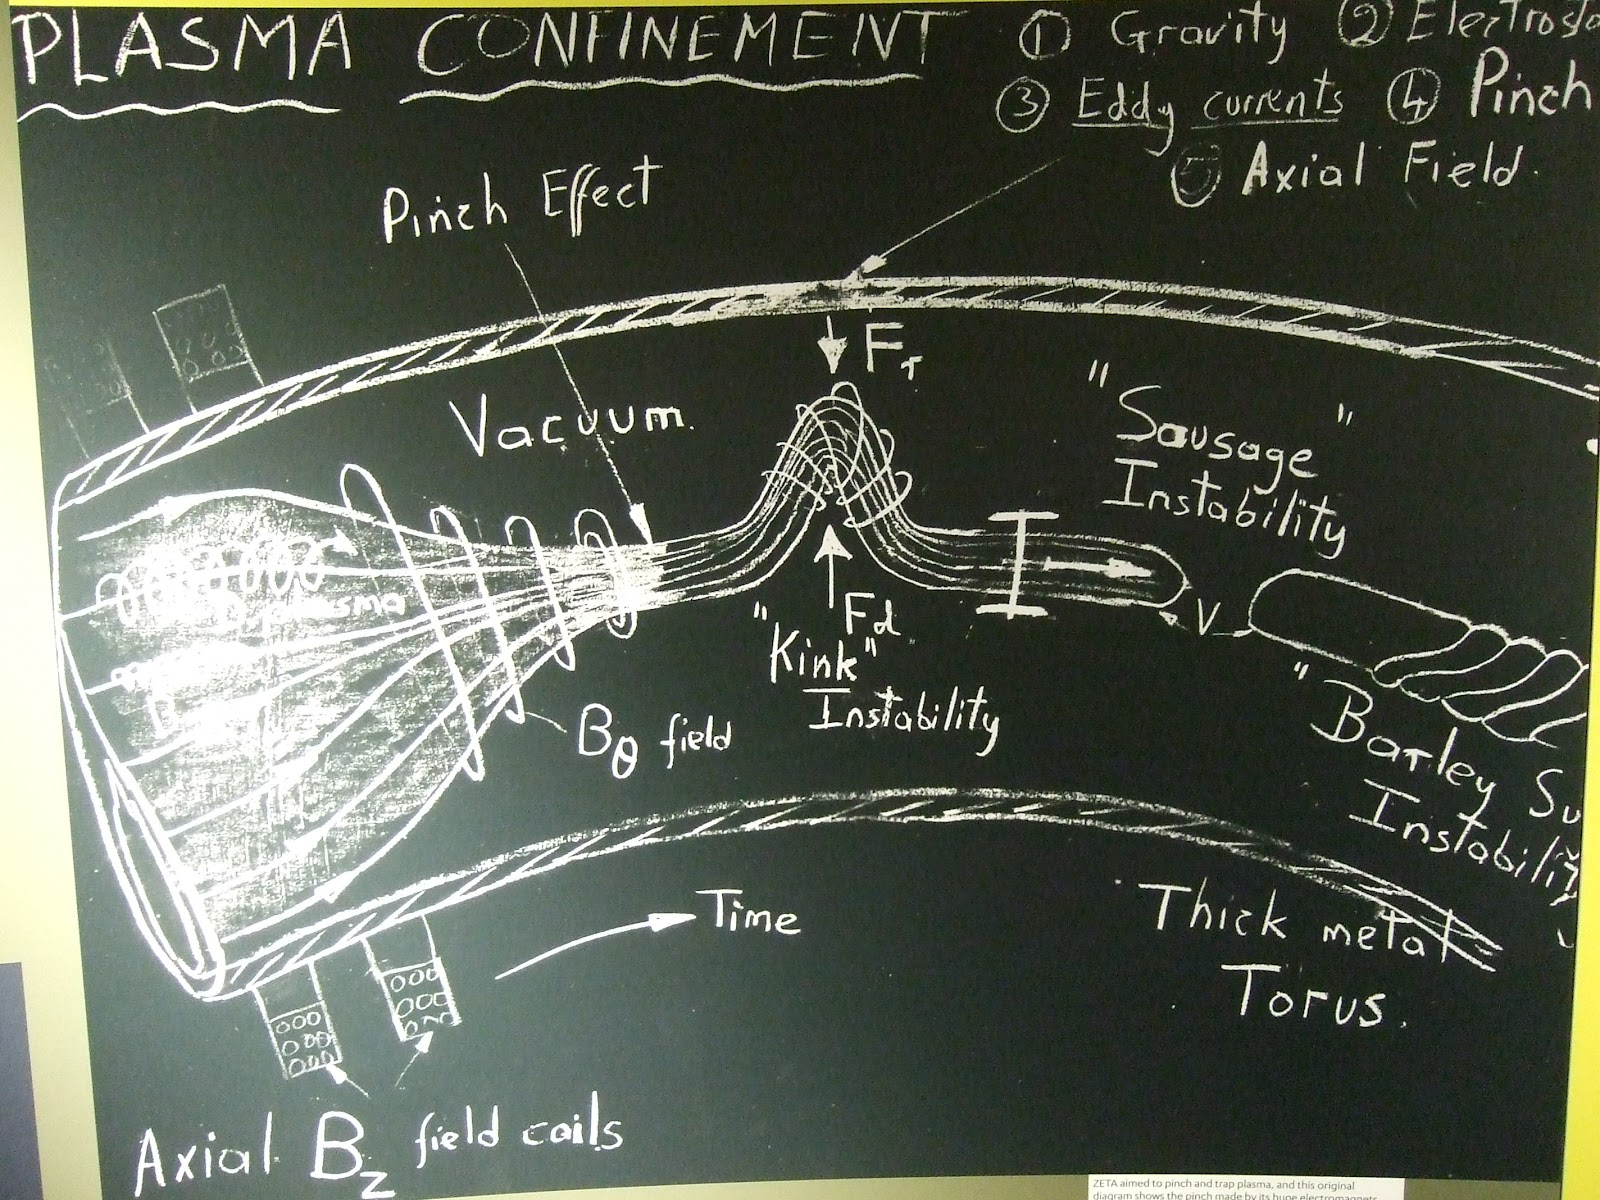 PLASMA CONFINEMENT
① Gravity ② Electrosta
③ Eddy currents ④ Pinch
⑤ Axial Field.
Pinch Effect
Vacuum.
F
"Sausage"
Instability
plasma
V
Fd
"Kink"
Instability
Bθ field
"Barley Su
Instability
Time
Thick metal
Torus.
Axial Bz field coils
ZETA aimed to pinch and trap plasma, and this original
diagram shows the pinch made by its huge electromagnets